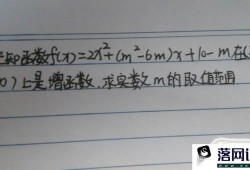 知函数f(x)=2x²+(m²-6m)x+10-m在
)上是增函数,求实数m的取值范围
落网